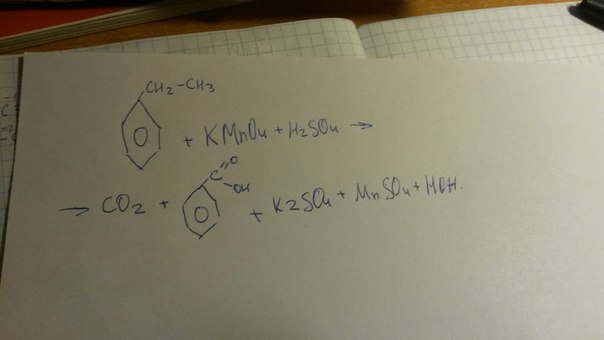 CH2-CH3
+ KMnO4 + H2SO4 →
→ CO2 + C=O -OH + K2SO4 + MnSO4 + HOH.